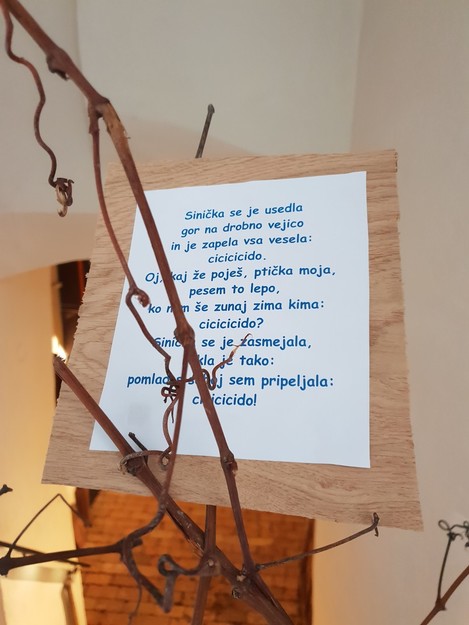 Sinička se je usedla
gor na drobno vejico
in je zapela vsa vesela:
cicicicido.
Oj, kaj že poješ, ptička moja,
pesem to lepo,
ko nam še zunaj zima kima:
cicicicido?
Sinička se je zasmejala,
je tako:
sem pripeljala:
cicicicido!